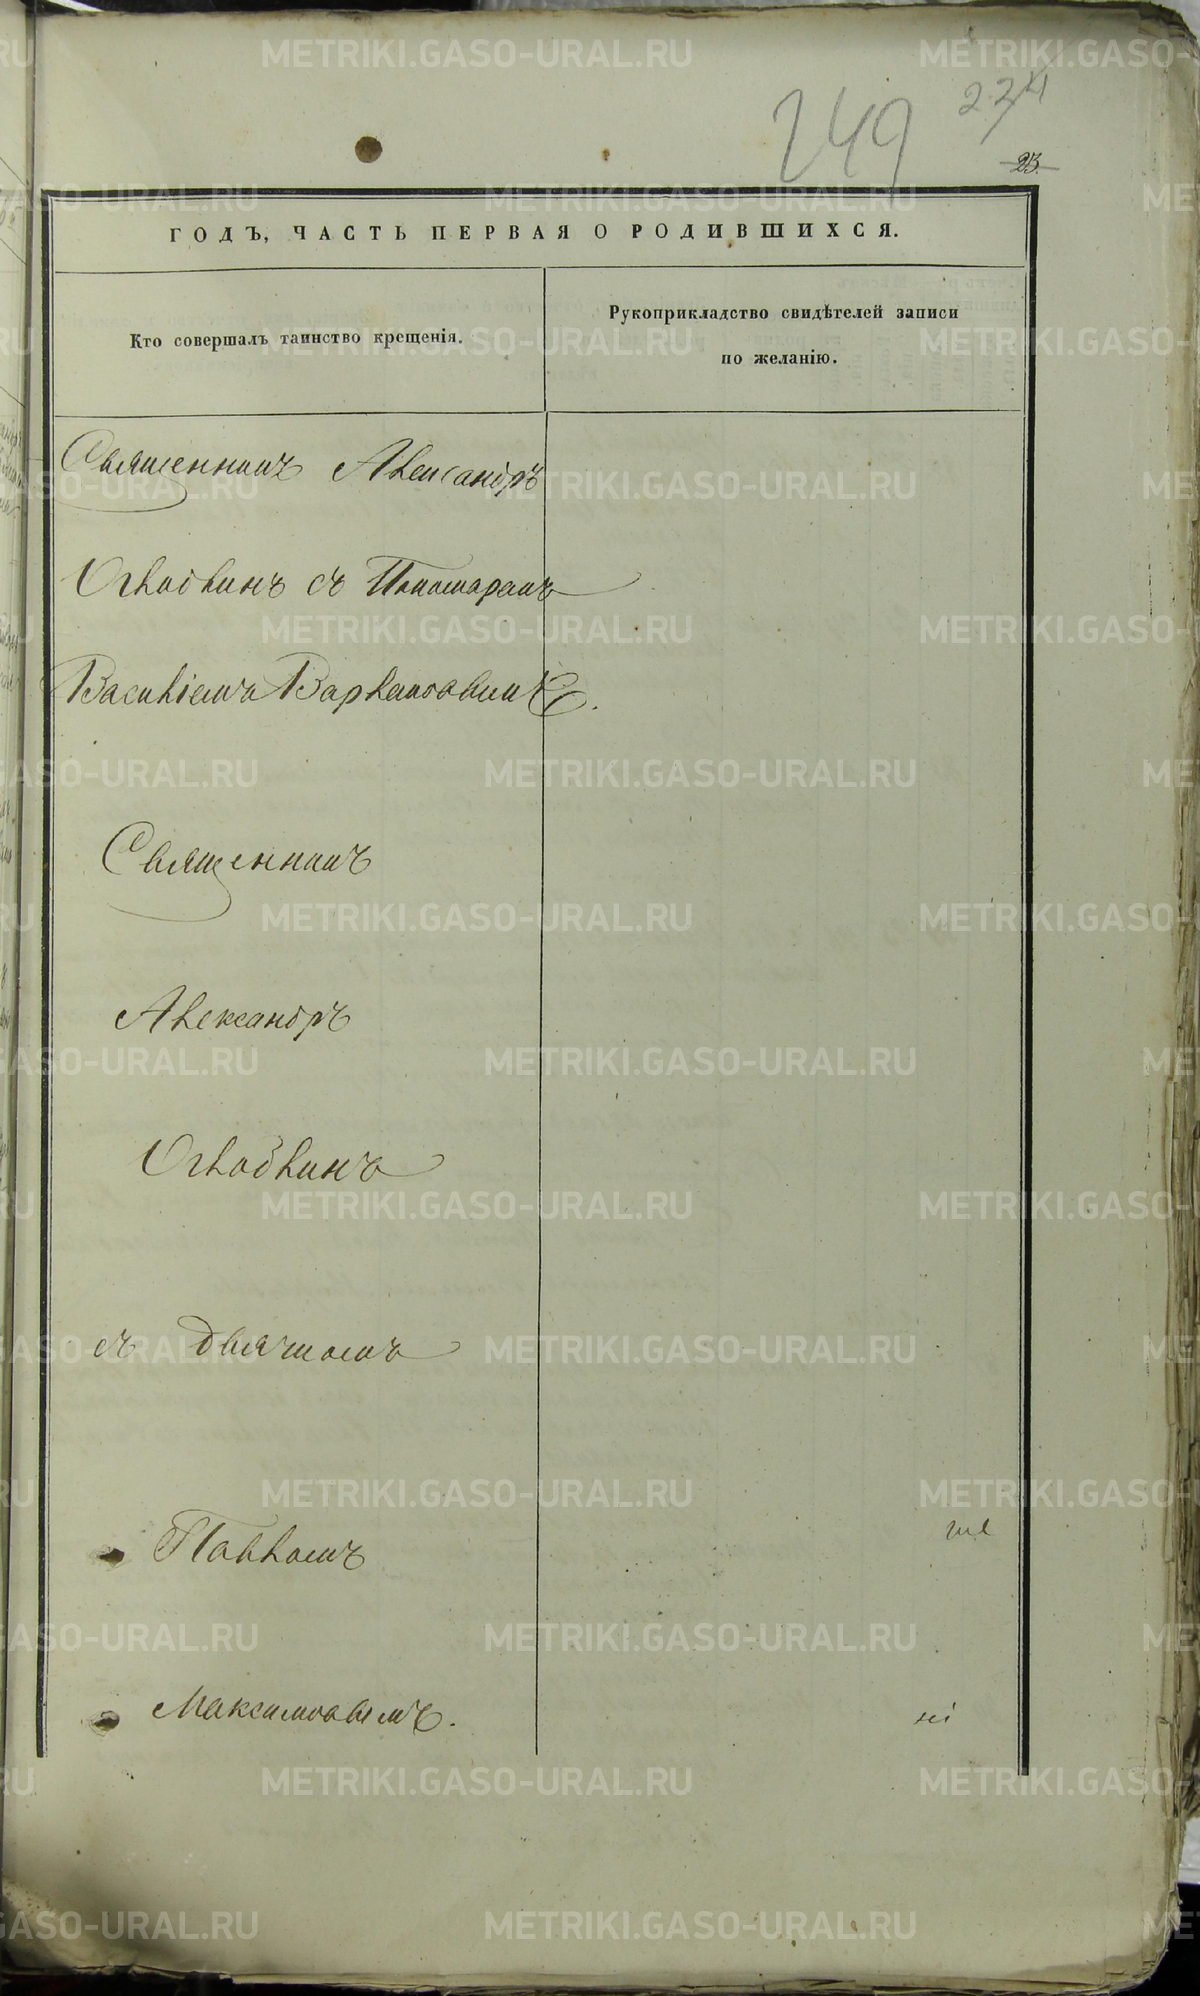 249 234
23.
ГОДЪ, ЧАСТЬ ПЕРВАЯ О РОДИВШИХСЯ.
Кто совершалъ таинство крещенія.
Рукоприкладство свидѣтелей записи
по желанію.
Священникъ Александръ
съ Пономаремъ
Василіемъ Варламовымъ.
Священникъ
Александръ
съ дьячкомъ
Павломъ
Максимовымъ.
METRIKI.GASO-URAL.RU